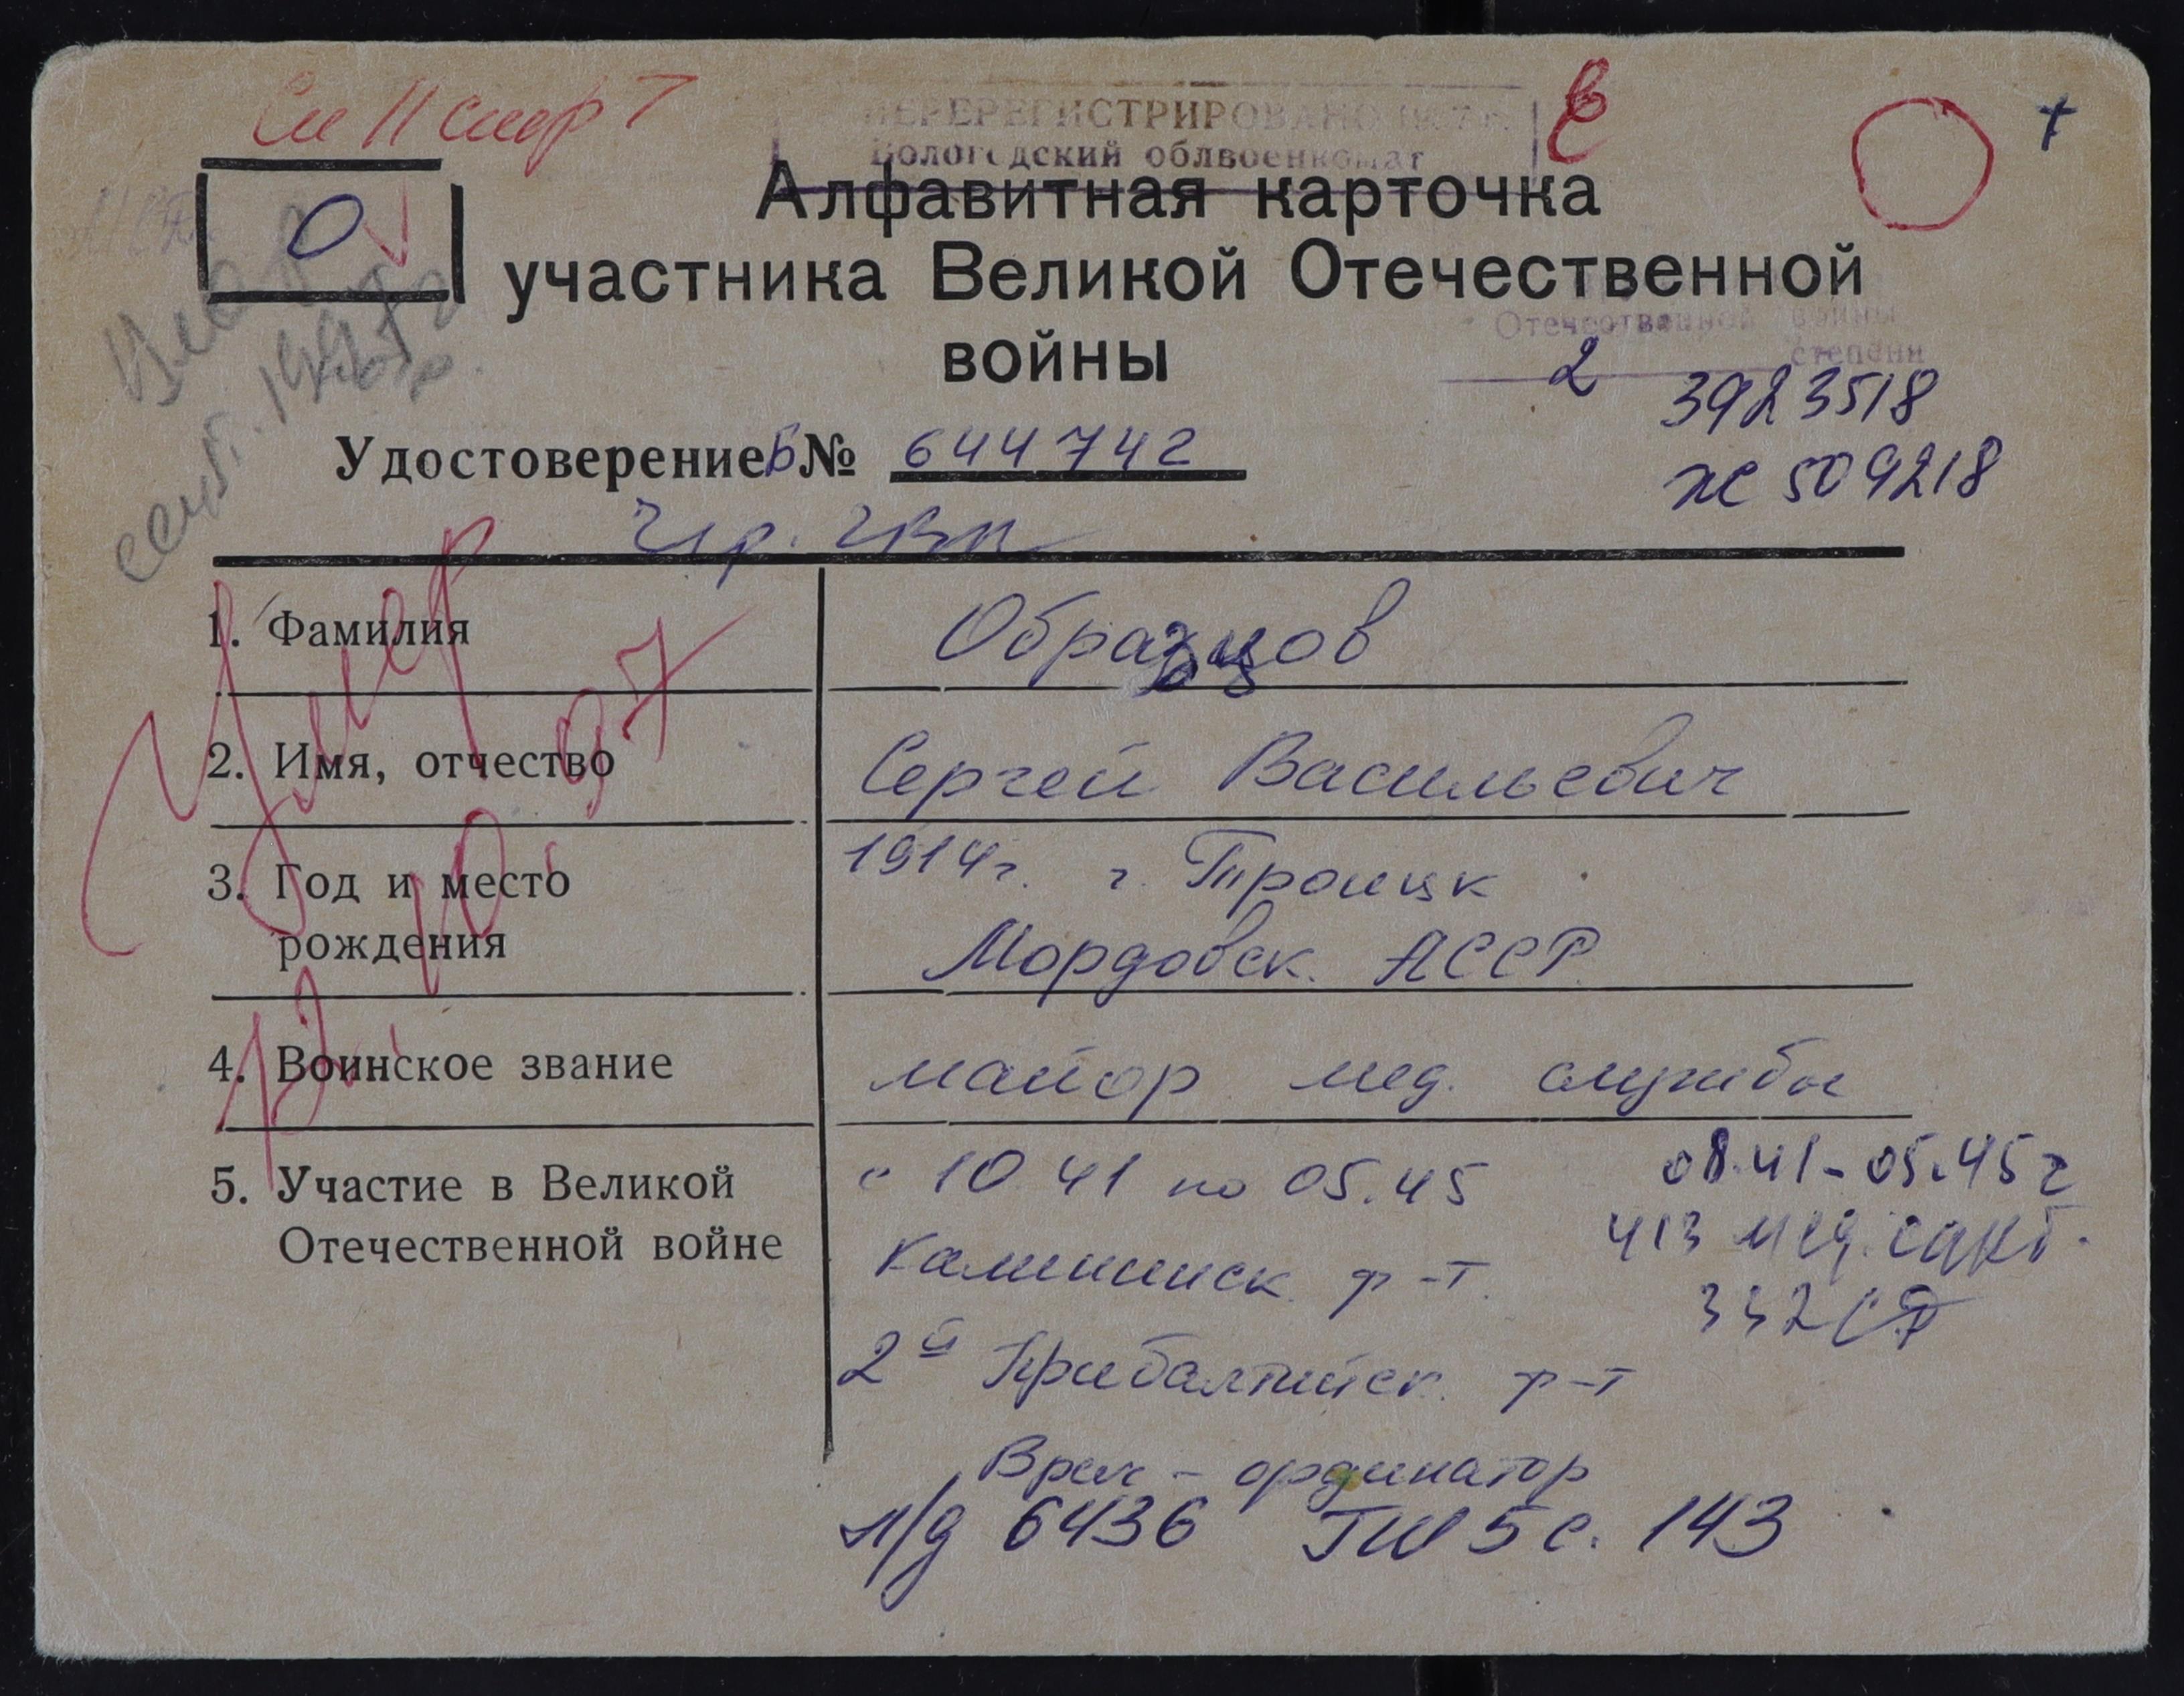 ПЕРЕРЕГИСТРИРОВАНО
Вологодский облвоенкомат
О
Алфавитная карточка
участника Великой Отечественной
войны
Отечественной войны
степени
2
3923518
Ж 509218
Удостоверение Б № 644742
1. Фамилия
Образцов
2. Имя, отчество
Сергей Васильевич
3. Год и место
рождения
1914г. г. Троицк
Мордовск. АССР
4. Воинское звание
майор мед. службы
5. Участие в Великой
Отечественной войне
с 10 41 по 05.45
08.41-05.45г
Калининск. ф-т.
413 мед.санб.
332 СД
2й Прибалтийск. ф-т
Врач - ординатор
л/д 6436 ГШ 5 с. 143
Умер